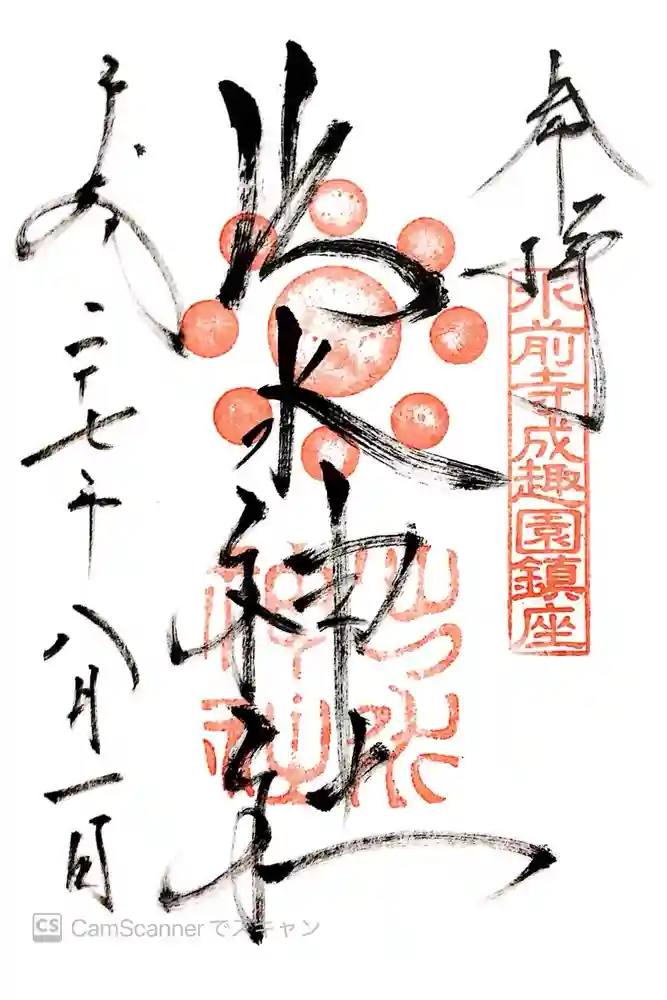 奉拝
水前寺成趣園鎮座
出水神社
出水神社
平成
二十七年
八月一日
CS CamScannerでスキャン